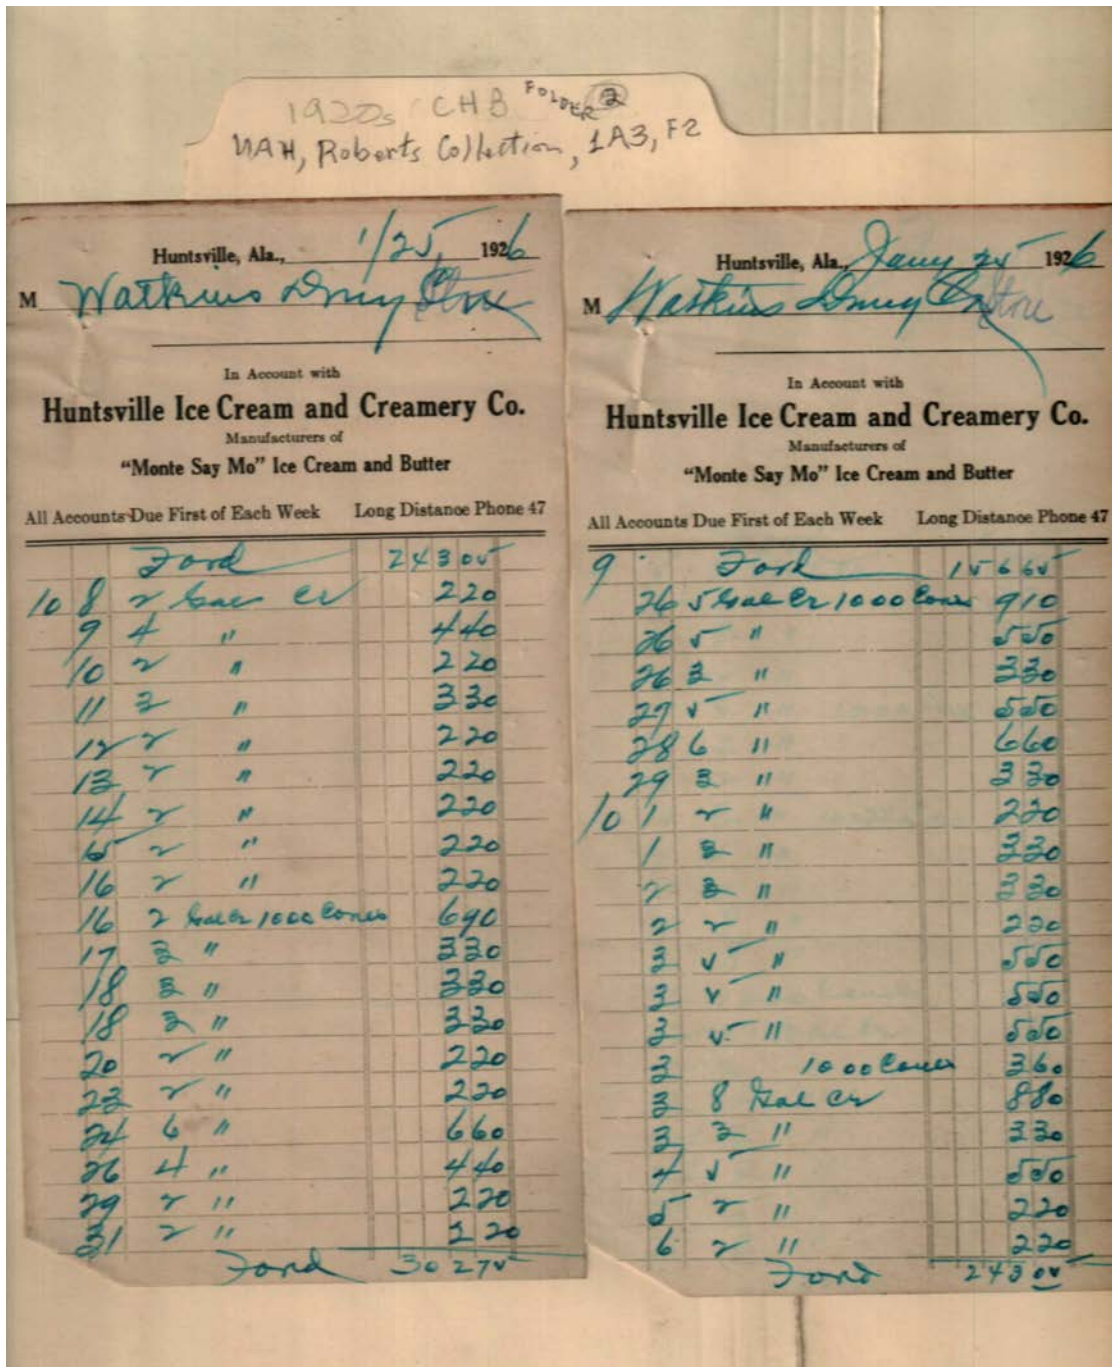 1920s CHB FOLDER 2
UAH, Roberts Collection, 1A3, F2
Huntsville, Ala., 1/25, 1926
M Watkins Drug Store
In Account with
Huntsville Ice Cream and Creamery Co.
Manufacturers of
"Monte Say Mo" Ice Cream and Butter
All Accounts Due First of Each Week Long Distance Phone 47
Ford 243 05
10 8 2 Gal Cr 220
9 4 " 440
10 2 " 220
11 3 " 330
12 2 " 220
13 2 " 220
14 2 " 220
15 2 " 220
16 2 " 220
16 2 Gal Cr 1000 Cones 690
17 3 " 330
18 3 " 330
18 3 " 330
20 2 " 220
23 2 " 220
24 6 " 660
26 4 " 440
29 2 " 220
31 2 " 220
Ford 302 75
Huntsville, Ala., Jany 25 1926
M Watkins Drug Store
In Account with
Huntsville Ice Cream and Creamery Co.
Manufacturers of
"Monte Say Mo" Ice Cream and Butter
All Accounts Due First of Each Week Long Distance Phone 47
9 Ford 156 65
26 5 Gal Cr 1000 Cones 910
26 5 " 550
26 3 " 330
27 5 " 550
28 6 " 660
29 3 " 330
10 1 2 " 220
1 3 " 330
2 3 " 330
2 2 " 220
3 5 " 550
3 5 " 550
3 5 " 550
3 1000 Cones 360
3 8 Gal Cr 880
3 3 " 330
4 5 " 550
5 2 " 220
6 2 " 220
Ford 243 05